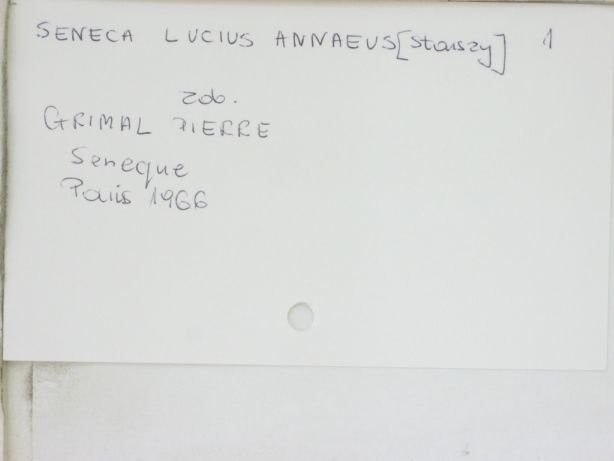 SENECA LUCIUS ANNAEUS [starszy] 1
zob.
GRIMAL PIERRE
Seneque
Paris 1966